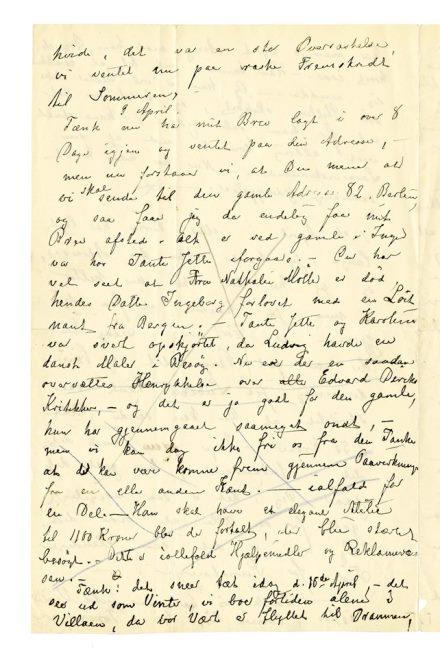 hvide, det var en stor Overraskelse,
vi ventet nu paa raske Fremskridt
til Sommeren, –
9 April.
Tænk nu har mit Brev lagt i over 8
Dage igjen og ventet paa din Adresse, –
men nu forstaar vi, at Du mener at
vi skal sende til den gamle Adresse 82, Berlin,
og saa faar jeg da endelig faa mit
Brev afsted. Alt er ved gamle. Inge
var hos Tante Jette forgaars. – Du har
vel seet at Fru Nathalie Motte er død
hendes Datter Ingeborg forlovet med en Løit
nant fra Bergen; – Tante Jette og Karoline
var svært opskjørtet, da Ludvig havde en
dansk Maler i Besøg. Nu er der en saadan
overvættes Henrykkelse over Edvard
Kritikker, – og det er jo godt for den gamle,
hun har gjennemgaaet saameget ondt, –
men vi kan dog ikke fri os fra den Tanke
at det kan være komme frem gjennem Paavirkning
fra en eller anden Kant. – ialfald for
en Del. – Han skal have et elegant Atelier
til 1100 Kroner blev der fortalt, der blev stærkt
besøgt. – Dette er iallefald Hjælpemidler og Reklamevæ
sen. –
Tænk! det sneer tæt idag d. 10de April, – det
ser ud som Vinter, vi bor fortiden alene i
Villaen, da vor Vært er flyttet til Drammen,